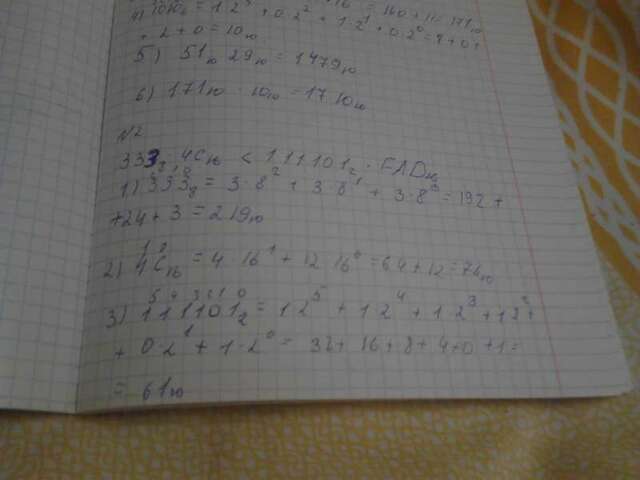 = 160 + 11 = 171₁₀
4) 1010₂ = 1·2³ + 0·2² + 1·2¹ + 0·2⁰ = 8 + 0 +
+ 2 + 0 = 10₁₀
5) 51₁₀ · 29₁₀ = 1479₁₀
6) 171₁₀ · 10₁₀ = 1710₁₀
№2
333₈ · 4C₁₆ < 111101₂ · FAD₁₆
1) 333₈ = 3·8² + 3·8¹ + 3·8⁰ = 192 +
+ 24 + 3 = 219₁₀
2) 4C₁₆ = 4·16¹ + 12·16⁰ = 64 + 12 = 76₁₀
3) 111101₂ = 1·2⁵ + 1·2⁴ + 1·2³ + 1·2² +
+ 0·2¹ + 1·2⁰ = 32 + 16 + 8 + 4 + 0 + 1 =
= 61₁₀